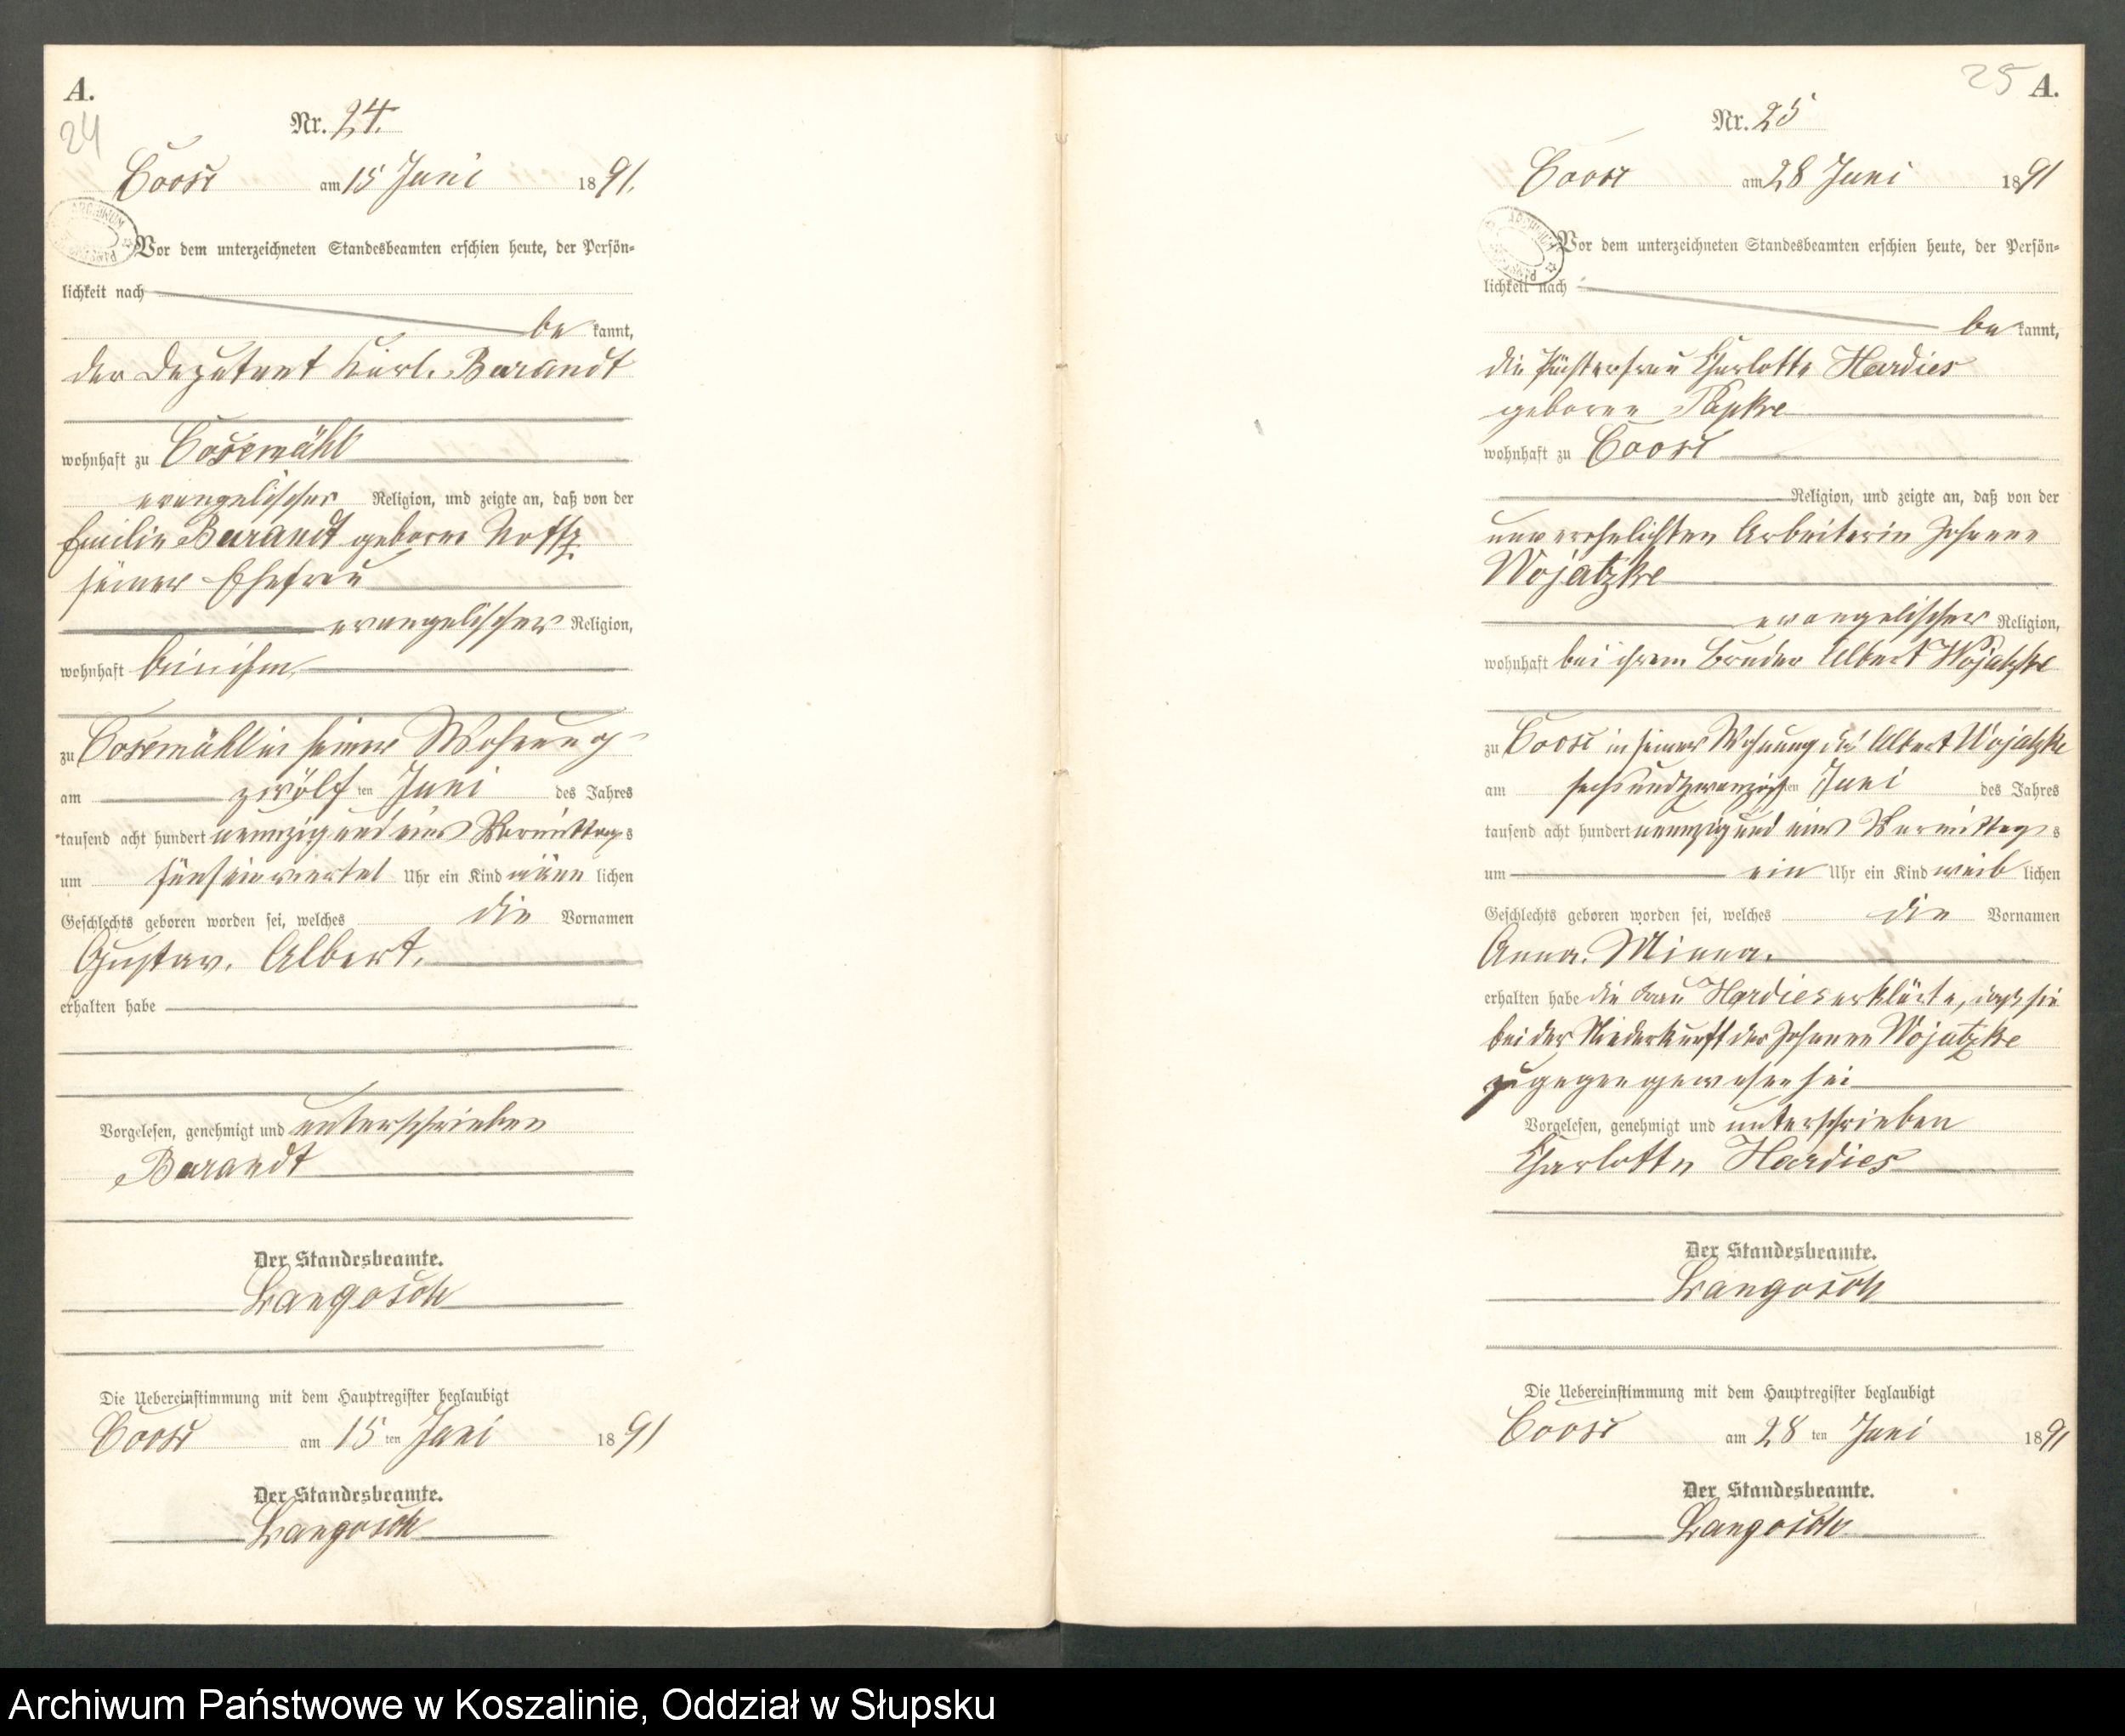 A.
24
Nr. 24.
Coose am 15 Juni 1891.
Vor dem unterzeichneten Standesbeamten erschien heute, der Persön-
lichkeit nach
be kannt,
der Deputant Karl Barandt
wohnhaft zu Cosemühl
evangelischer Religion, und zeigte an, daß von der
Emilie Barandt geborne
seiner Ehefrau
evangelischer Religion,
wohnhaft bei ihm
zu Cosemühl in seiner Wohnung
am zwölf ten Juni des Jahres
tausend acht hundert neunzig und eins Vormittags
um fünfeinviertel Uhr ein Kind männ lichen
Geschlechts geboren worden sei, welches die Vornamen
Gustav. Albert.
erhalten habe
Vorgelesen, genehmigt und unterschrieben
Barandt
Der Standesbeamte.
Langosch
Die Uebereinstimmung mit dem Hauptregister beglaubigt
Coose am 15 ten Juni 1891
Der Standesbeamte.
Langosch
25 A.
Nr. 25
Coose am 28 Juni 1891
Vor dem unterzeichneten Standesbeamten erschien heute, der Persön-
lichkeit nach
be kannt,
die Charlotte Hardies
geborene Papke
wohnhaft zu Coose
Religion, und zeigte an, daß von der
unverehelichten Arbeiterin Johanne
Wojatzke
evangelischer Religion,
wohnhaft bei ihrem Bruder Albert Wojatzke
zu Coose in seiner Wohnung des Albert Wojatzke
am sechsundzwanzigsten Juni des Jahres
tausend acht hundert neunzig und eins Vormittags
um ein Uhr ein Kind weib lichen
Geschlechts geboren worden sei, welches die Vornamen
Anna. Minna.
erhalten habe die Frau Hardies erklärte, daß sie
bei der Niederkunft der Johanne Wojatzke
zugegen gewesen sei
Vorgelesen, genehmigt und unterschrieben
Charlotte Hardies
Der Standesbeamte.
Langosch
Die Uebereinstimmung mit dem Hauptregister beglaubigt
Coose am 28 ten Juni 1891
Der Standesbeamte.
Langosch
Archiwum Państwowe w Koszalinie, Oddział w Słupsku